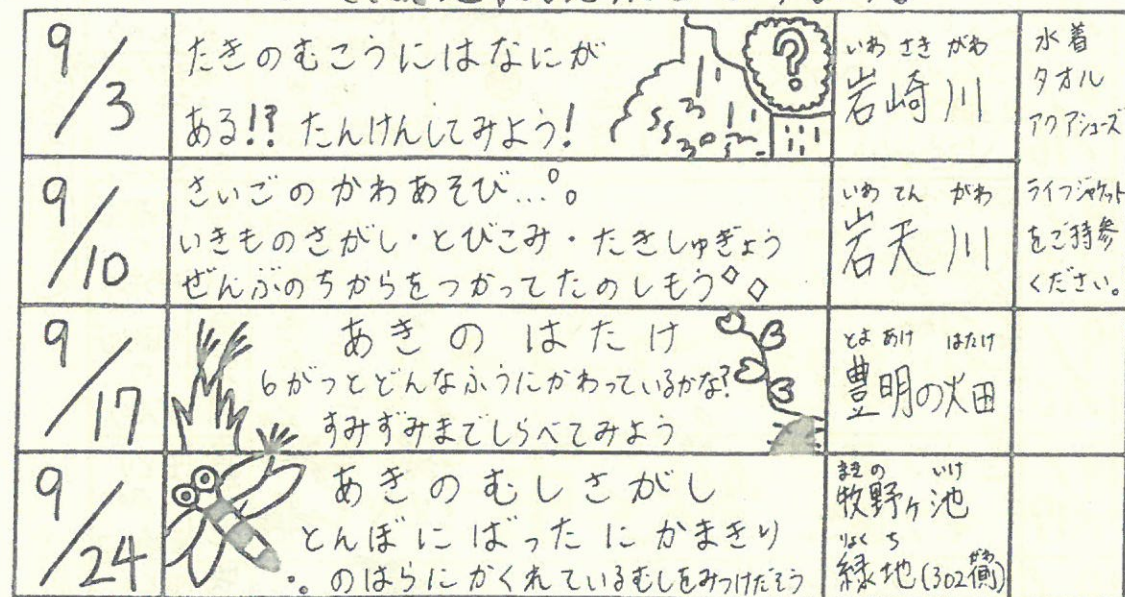 9/3
たきのむこうにはなにが
ある!? たんけんしてみよう!
?
いわ さき がわ
岩崎川
水着
タオル
アクアシューズ
9/10
さいごのかわあそび...。
いきものさがし・とびこみ・たきしゅぎょう
ぜんぶのちからをつかってたのしもう
いわ てん がわ
岩天川
ライフジャケット
をご持参
ください。
9/17
あきのはたけ
6がつとどんなふうにかわっているかな?
すみずみまでしらべてみよう
とよ あけ はたけ
豊明の畑
9/24
あきのむしさがし
とんぼにばったにかまきり
のはらにかくれているむしをみつけだそう
まきの いけ
牧野ヶ池
りょく ち がわ
緑地(302側)